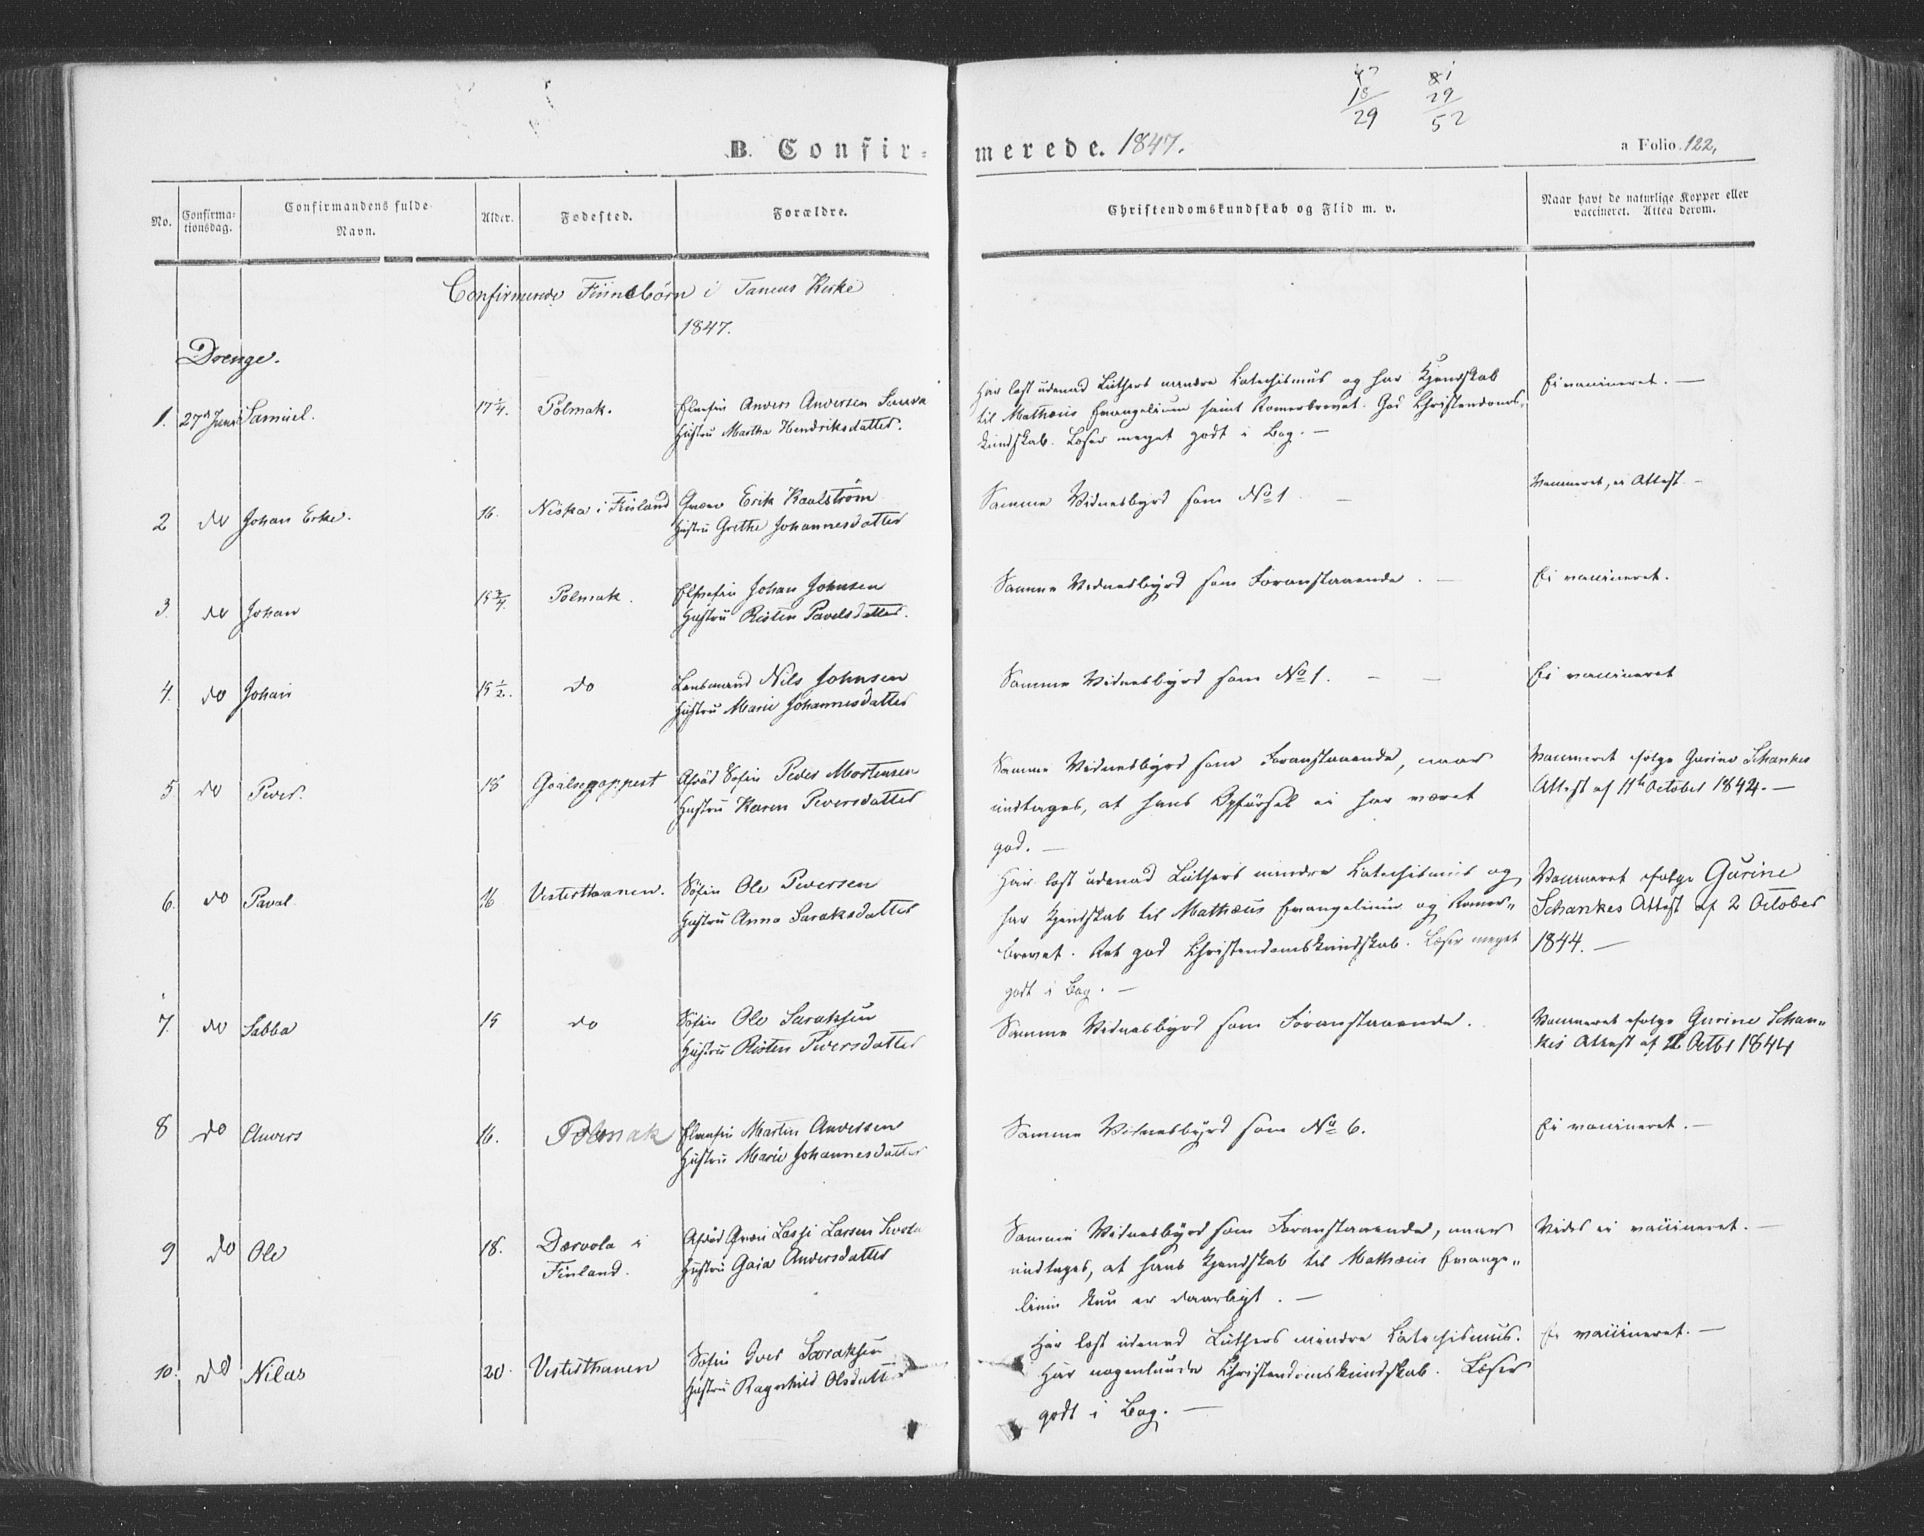 47
18
29
81
29
52
B. Confir-
merede. 1847.
a Folio. 122,
No.
Confirma-
tionsdag.
Confirmandens fulde
Navn.
Alder.
Fødested.
Forældre.
Christendomskundskab og Flid m. v.
Naar havt de naturlige Kopper eller
vaccineret. Attea derom.
Confirmerede Finnebørn i Tanens Kirke
1847.
Drenge.
1. 27de Juni Samuel. 17 1/4. Polmak. Elvefin Anders Andersen
Hustru Martha Hendriksdatter.
Har læst udenad Luthers mindre Catechismus og har Kjendskab
til Mathæus Evangelium samt Romerbrevet. God Christendoms-
kundskab. Læser meget godt i Bog. —
Ei vaccineret. —
2 do Johan Erke. 16. Niska i Finland Qvæn Erik Kaalstrøm
Hustru Grethe Johannesdatter
Samme Vidnesbyrd som No 1. —
Vaccineret, ei Attest. —
3. do Johan 15 3/4. Polmak. Elvefin Johan Johnsen
Hustru Risten Pavelsdatter.
Samme Vidnesbyrd som Foranstaaende. —
Ei vaccineret.
4. do Johan 15 1/2. do Lensmand Nils Johnsen
Hustru Marie Johannesdatter
Samme Vidnesbyrd som No 1. — —
Ei vaccineret
5 do Peder. 18 Goalsegoppest Afdød Søfin Peder Mortensen
Hustru Karen Pedersdatter
Samme Vidnesbyrd som Foranstaaende, naar
undtages, at hans Opførsel ei har været
god. —
Vaccineret ifølge Gurine Schankes
Attest af 11te October 1842. —
6. do Paval. 16 Vestertanen. Søfin Ole Pedersen
Hustru Anna Saraksdatter
Har læst udenad Luthers mindre Catechismus og
har Kjendskab til Mathæus Evangelium og Romer-
brevet. Ret god Christendomskundskab. Læser meget
godt i Bog. —
Vaccineret ifølge Gurine
Schankes Attest af 2 October
1844. —
7. do Sabba 15 do Søfin Ole Saraksen
Hustru Risten Pedersdatter
Samme Vidnesbyrd som Foranstaaende.
Vaccineret ifølge Gurine Schan-
kes Attest af 2 Octbr 1844
8 do Anders 16. Polmak Elvefin Martin Andersen
Hustru Marie Johannesdatter
Samme Vidnesbyrd som No 6.
Ei vaccineret. —
9 do Ole 18. Dærvola i
Finland.
Afdød Qvæn Lasse Larsen
Hustru Gaia Andersdatter
Samme Vidnesbyrd som Foranstaaende, naar
undtages, at hans Kjendskab til Mathæus Evange-
lium kun er daarligt. —
Vides ei vaccineret. —
10. do Nilas 20. Vestertanen Søfin Iver Saraksen
Hustru Ragnhild Olsdatter
Har læst udenad Luthers mindre Catechismus.
Har nogenlunde Christendomskundskab. Læser
godt i Bog. —
Ei vaccineret. —